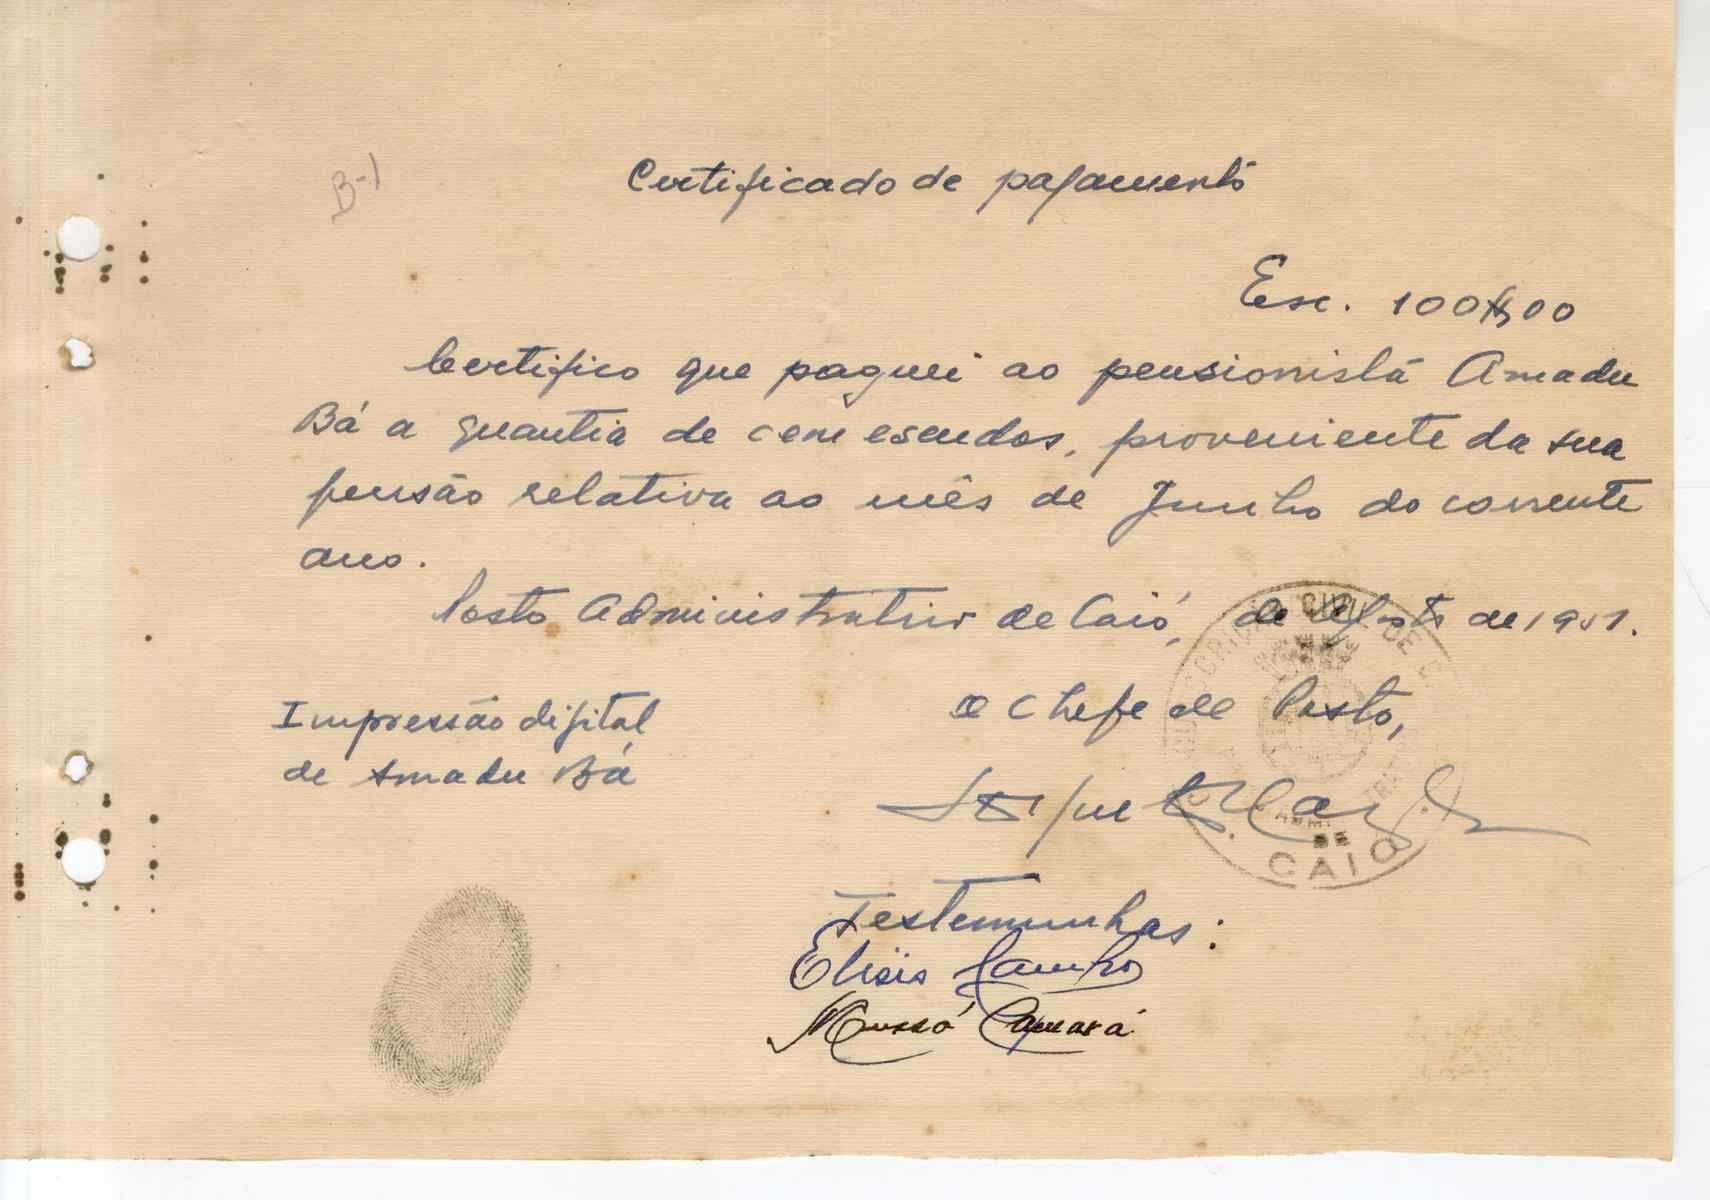 B-1
Certificado de pagamento
Esc. 100$00
Certifico que paguei ao pensionista Amadu
Bá a quantia de cem escudos, proveniente da sua
pensão relativa ao mês de Junho do corrente
ano.
Posto Administrativo de Caió, de Agosto de 1951.
Impressão digital
de Amadu Bá
O Chefe de Posto,
CIRCUNSCRIÇÃO CIVIL DE
DE
CAIÓ
Testemunhas:
Elisio
Mussá Camará